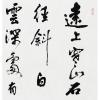 遠上寒山石
徑斜白
雲深處有